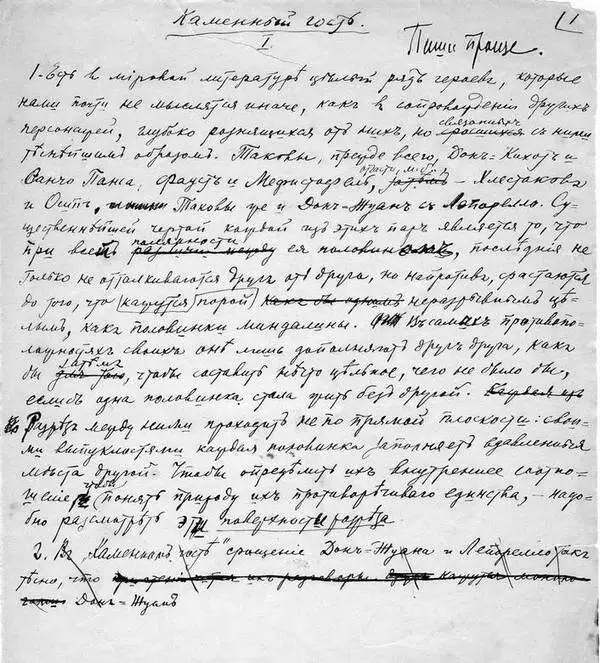 1
Каменный гость.
I.
Пиши проще.
1. Есть в мiровой литературѣ цѣлый рядъ героевъ, которые
нами почти не мыслятся иначе, какъ в сопровожденiи другихъ
связанныхъ
персонажей, глубоко разнящихся отъ нихъ, но сросшихся съ ними
тѣснѣйшимъ образомъ. Таковы, прежде всего, Донъ-Кихотъ и
отчасти, м.б.,
Санчо Панса, Фаустъ и Мефистофель, затѣмъ – Хлестаковъ
и Осипъ. Таковы же и Донъ-Жуанъ съ Лепорелло. Су-
щественнѣйшей чертой каждой изъ этихъ паръ является то, что
полярности
при всей различiи между ея половинокъ, послѣднiя не
только не отталкиваются другъ отъ друга, но напротивъ, срастаются
до того, что кажутся порой какъ бы однимъ неразрывнымъ цѣ-
лымъ, какъ половинки миндалины. Въ самыхъ противопо-
ложностяхъ своихъ онѣ лишь дополняютъ другъ друга, какъ
затѣмъ
бы для того, чтобы составить нѣчто цѣльное, чего не было бы,
еслибъ одна половинка стала жить безъ другой. Каждая изъ
Разрѣзъ между ними проходитъ не по прямой плоскости: свои-
ми выпуклостями каждая половинка заполняетъ вдавленныя
мѣста другой. Чтобы опредѣлить ихъ внутреннее соотно-
чтобы
шенiе и понять природу ихъ противорѣчиваго единства, – надо-
бно разсмотрѣть эти поверхности разрѣза.
2. Въ "Каменномъ гостѣ" сращенiе Донъ-Жуана и Лепорелло такъ
тѣсно, что при чтенiи ихъ разговоры другъ кажутся
Донъ-Жуанъ